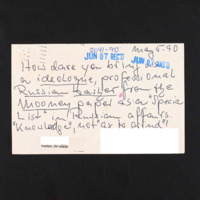 2041-90 May 5.90
JUN 07 REC'D JUN 07 ANS'D
How dare you bring
an ideologue, professional
Russian hater from the
Mooney paper as a "specia
list" in Russian affairs.
"Knowledge", not ax to grind"!